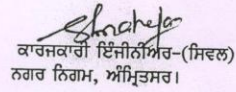 ਕਾਰਜਕਾਰੀ ਇੰਜੀਨੀਅਰ-(ਸਿਵਲ)
ਨਗਰ ਨਿਗਮ, ਅੰਮ੍ਰਿਤਸਰ।